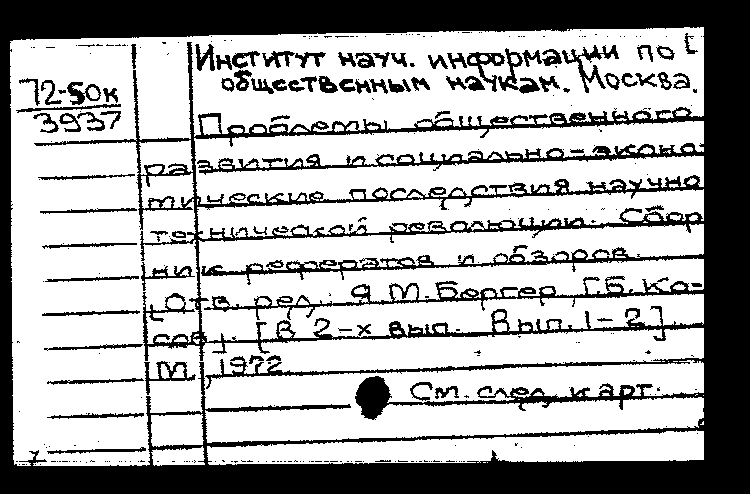 Институт науч. информации по [
общественным наукам. Москва.
72-50к
3937
Проблемы общественного
развития и социально-эконо-
мические последствия научно
технической революции. Сбор
ник рефератов и обзоров.
[Отв. ред.: Я М. Бергер, Г.Б. Ко-
сов]. [В 2-х вып. Вып. 1-2].
М., 1972
См. след. карт.